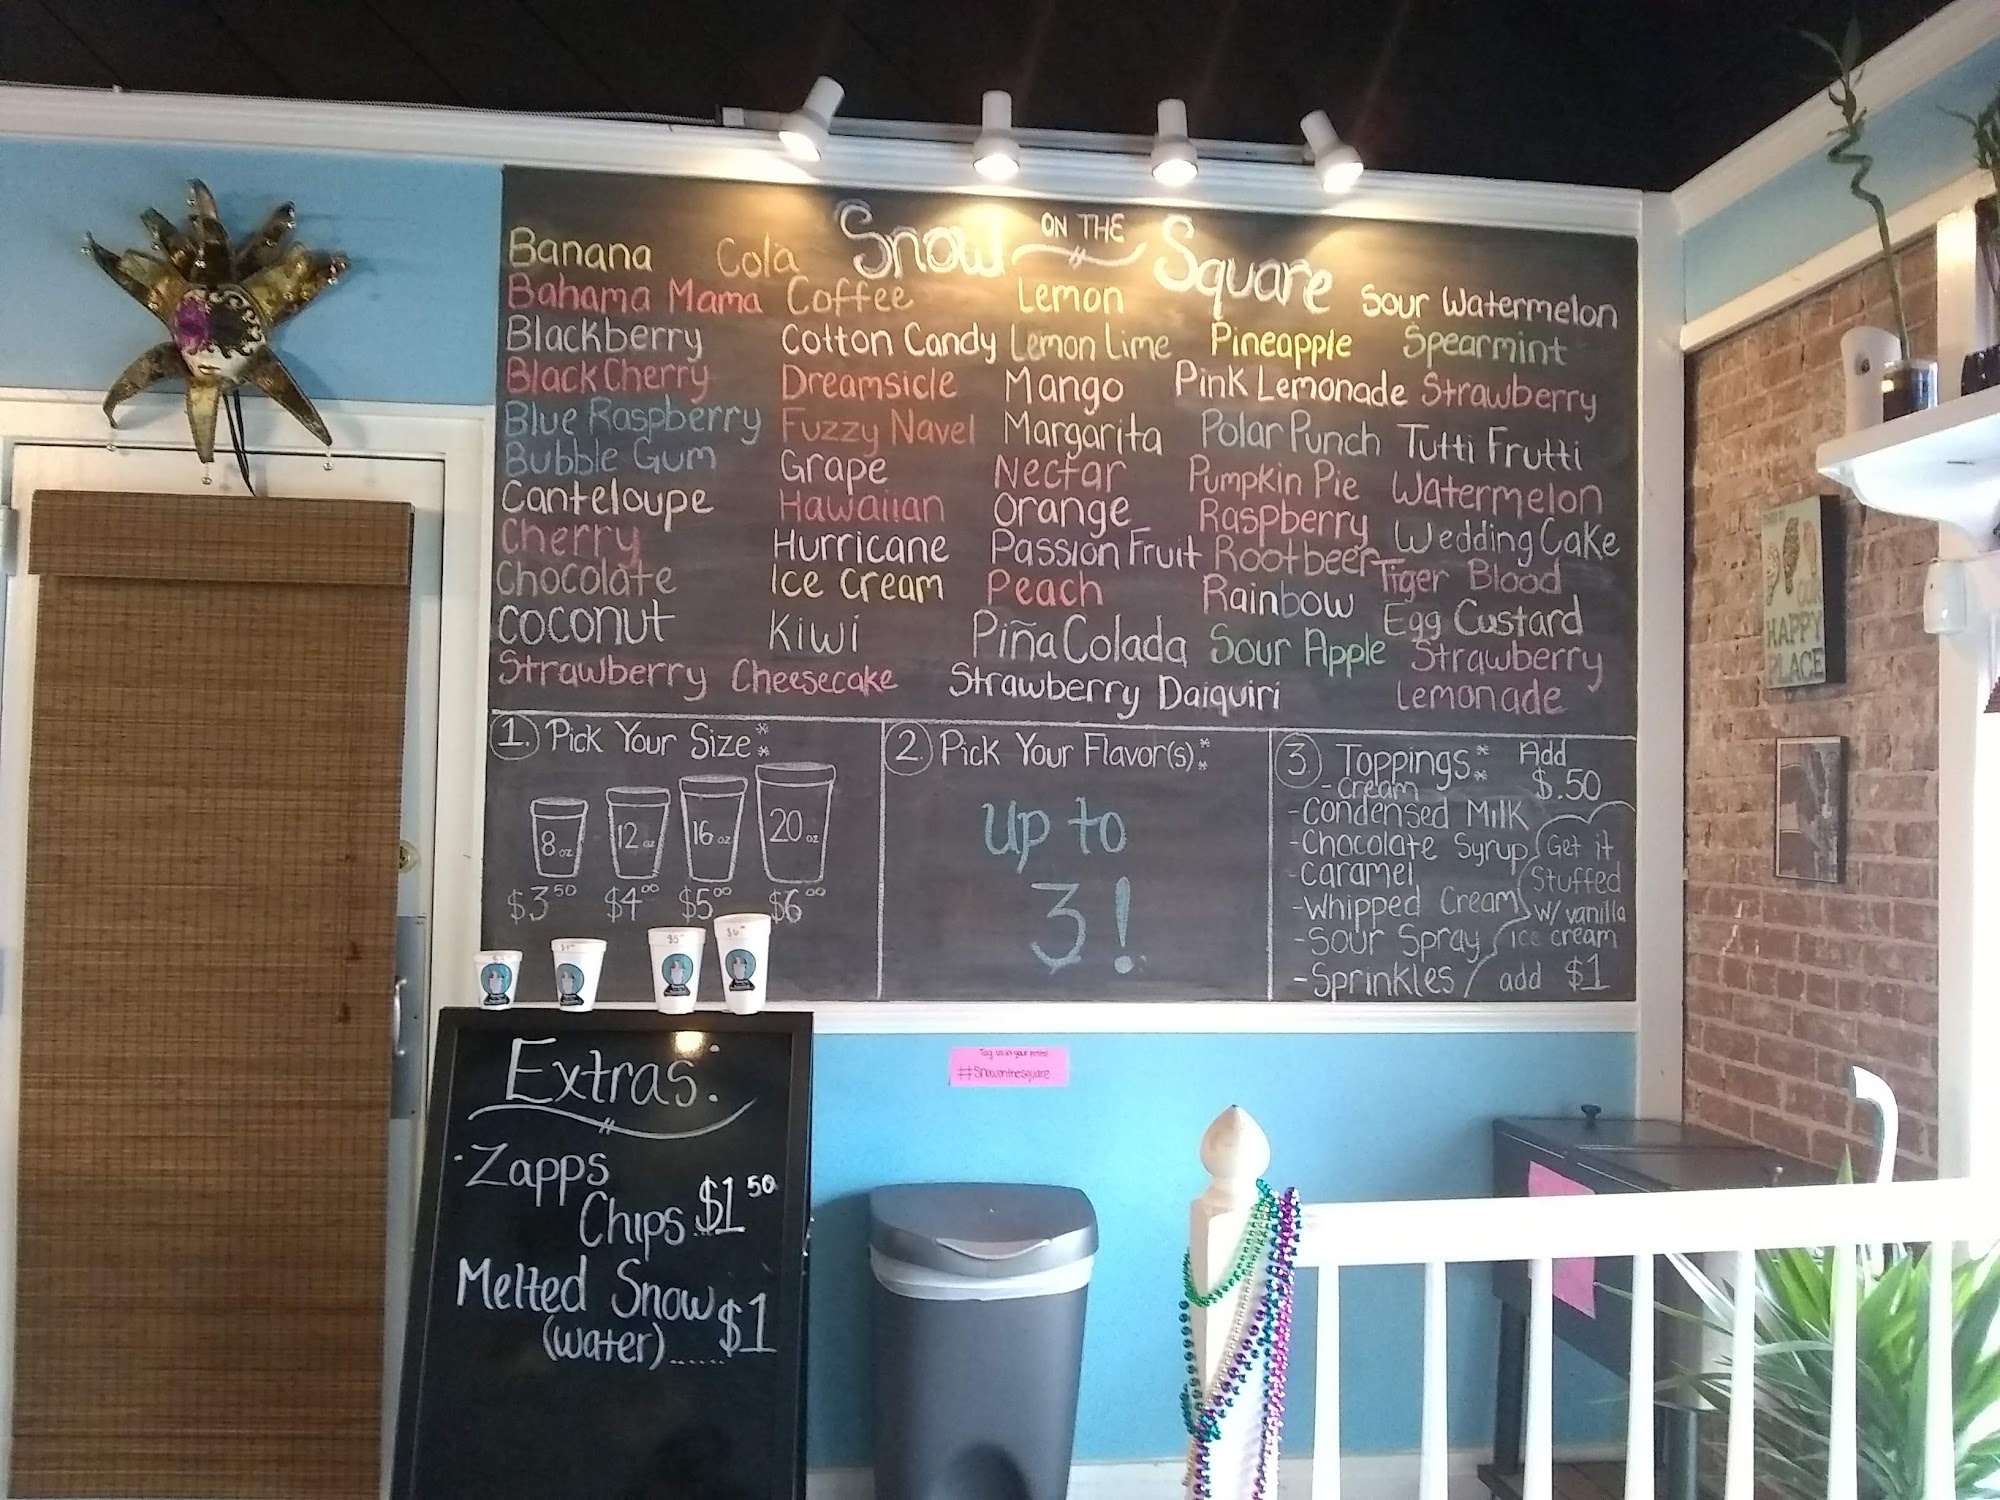 Snow ON THE Square
Banana
Bahama Mama
Blackberry
Black Cherry
Blue Raspberry
Bubble Gum
Canteloupe
Cherry
Chocolate
Coconut
Strawberry Cheesecake
Cola
Coffee
Cotton Candy
Dreamsicle
Fuzzy Navel
Grape
Hawaiian
Hurricane
Ice Cream
Kiwi
Lemon
Lemon Lime
Mango
Margarita
Nectar
Orange
Passion Fruit
Peach
Piña Colada
Strawberry Daiquiri
Pineapple
Pink Lemonade
Polar Punch
Pumpkin Pie
Raspberry
Rootbeer
Rainbow
Sour Apple
Sour Watermelon
Spearmint
Strawberry
Tutti Frutti
Watermelon
Wedding Cake
Tiger Blood
Egg Custard
Strawberry
Lemonade
1. Pick Your Size:
8 oz
12 oz
16 oz
20 oz
$3.50
$4.00
$5.00
$6.00
2. Pick Your Flavor(s):
up to
3!
3. Toppings: Add
$.50
- Cream
- Condensed Milk
- Chocolate Syrup
- Caramel
- Whipped Cream
- Sour Spray
- Sprinkles
Get it
Stuffed
w/ vanilla
ice cream
add $1
Extras:
· Zapps
Chips...$1.50
Melted Snow
(water)......$1
Tag us in your
#Snowonthesquare
OUR
HAPPY
PLACE